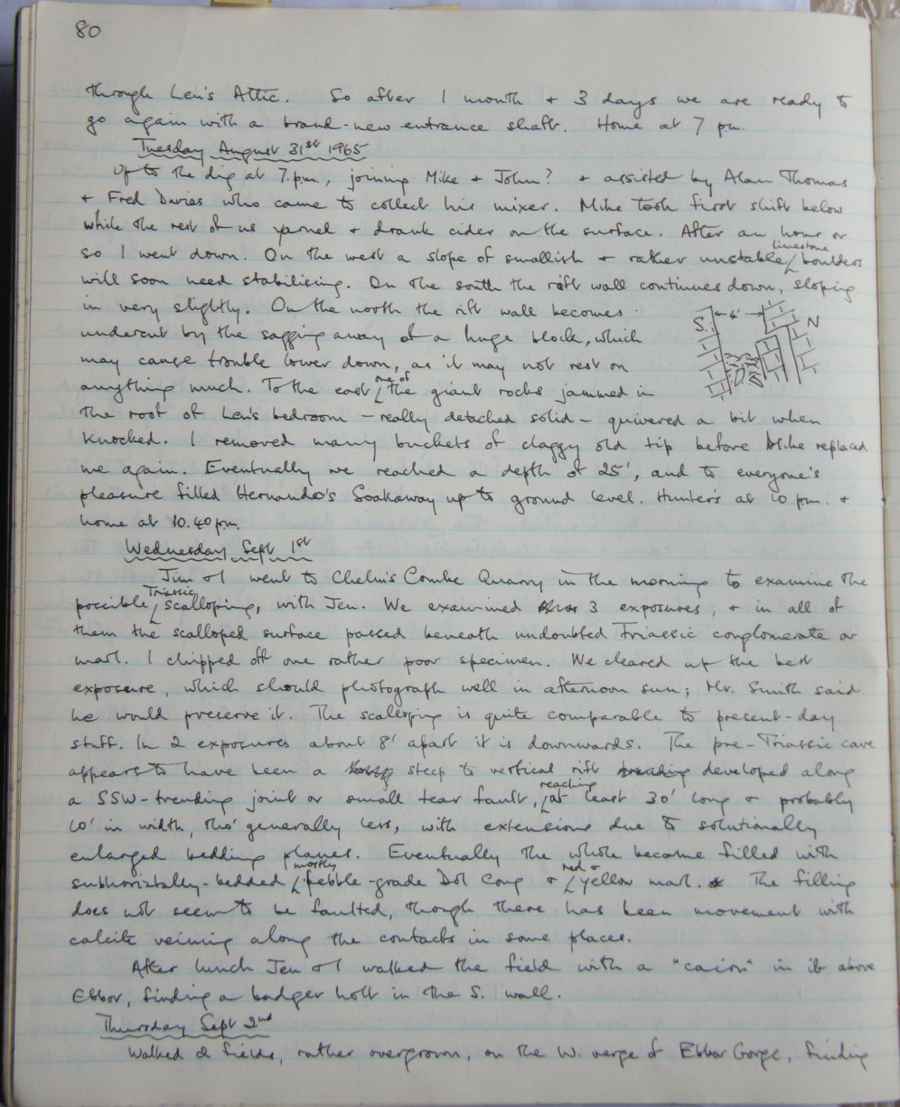 80
through Len's Attic. So after 1 month + 3 days we are ready to
go again with a brand-new entrance shaft. Home at 7 pm.
Tuesday August 31st 1965
Up to the dig at 7.pm, joining Mike + John? + assisted by Alan Thomas
+ Fred Davies who came to collect his mixer. Mike took first shift below
while the rest of us yarned + drank cider on the surface. After an hour or
so I went down. On the west a slope of smallish + rather unstable limestone boulders
will soon need stabilising. On the south the rift wall continues down, sloping
in very slightly. On the north the rift wall becomes
S. 6' N
undercut by the sagging away of a huge block, which
may cause trouble lower down, as it may not rest on
anything much. To the east one of the giant rocks jammed in
the roof of Len's bedroom – really detached solid – quivered a bit when
knocked. I removed many buckets of claggy old tip before Mike replaced
me again. Eventually we reached a depth of 25', and to everyone's
pleasure filled Hernando's Soakaway up to ground level. Hunter's at 10 pm. +
home at 10.40pm.
Wednesday Sept 1st
Jim + I went to Chelm's Combe Quarry in the morning to examine the
possible Triassic scalloping, with Jen. We examined 3 exposures, + in all of
them the scalloped surface passed beneath undoubted Triassic conglomerate or
marl. I chipped off one rather poor specimen. We cleared up the best
exposure, which should photograph well in afternoon sun; Mr. Smith said
he would preserve it. The scalloping is quite comparable to present-day
stuff. In 2 exposures about 8' apart it is downwards. The pre-Triassic cave
appears to have been a steep to vertical rift developed along
a SSW-trending joint or small tear fault, reaching at least 30' long + probably
10' in width, tho' generally less, with extensions due to solutionally
enlarged bedding planes. Eventually the whole became filled with
subhorizontally-bedded mostly pebble-grade Dol Cong + red + yellow marl. The filling
does not seem to be faulted, though there has been movement with
calcite veining along the contacts in some places.
After lunch Jen + I walked the field with a "cairn" in it above
Ebbor, finding a badger holt in the S. wall.
Thursday Sept 2nd
Walked 2 fields, rather overgrown, on the W. verge of Ebbor Gorge, finding